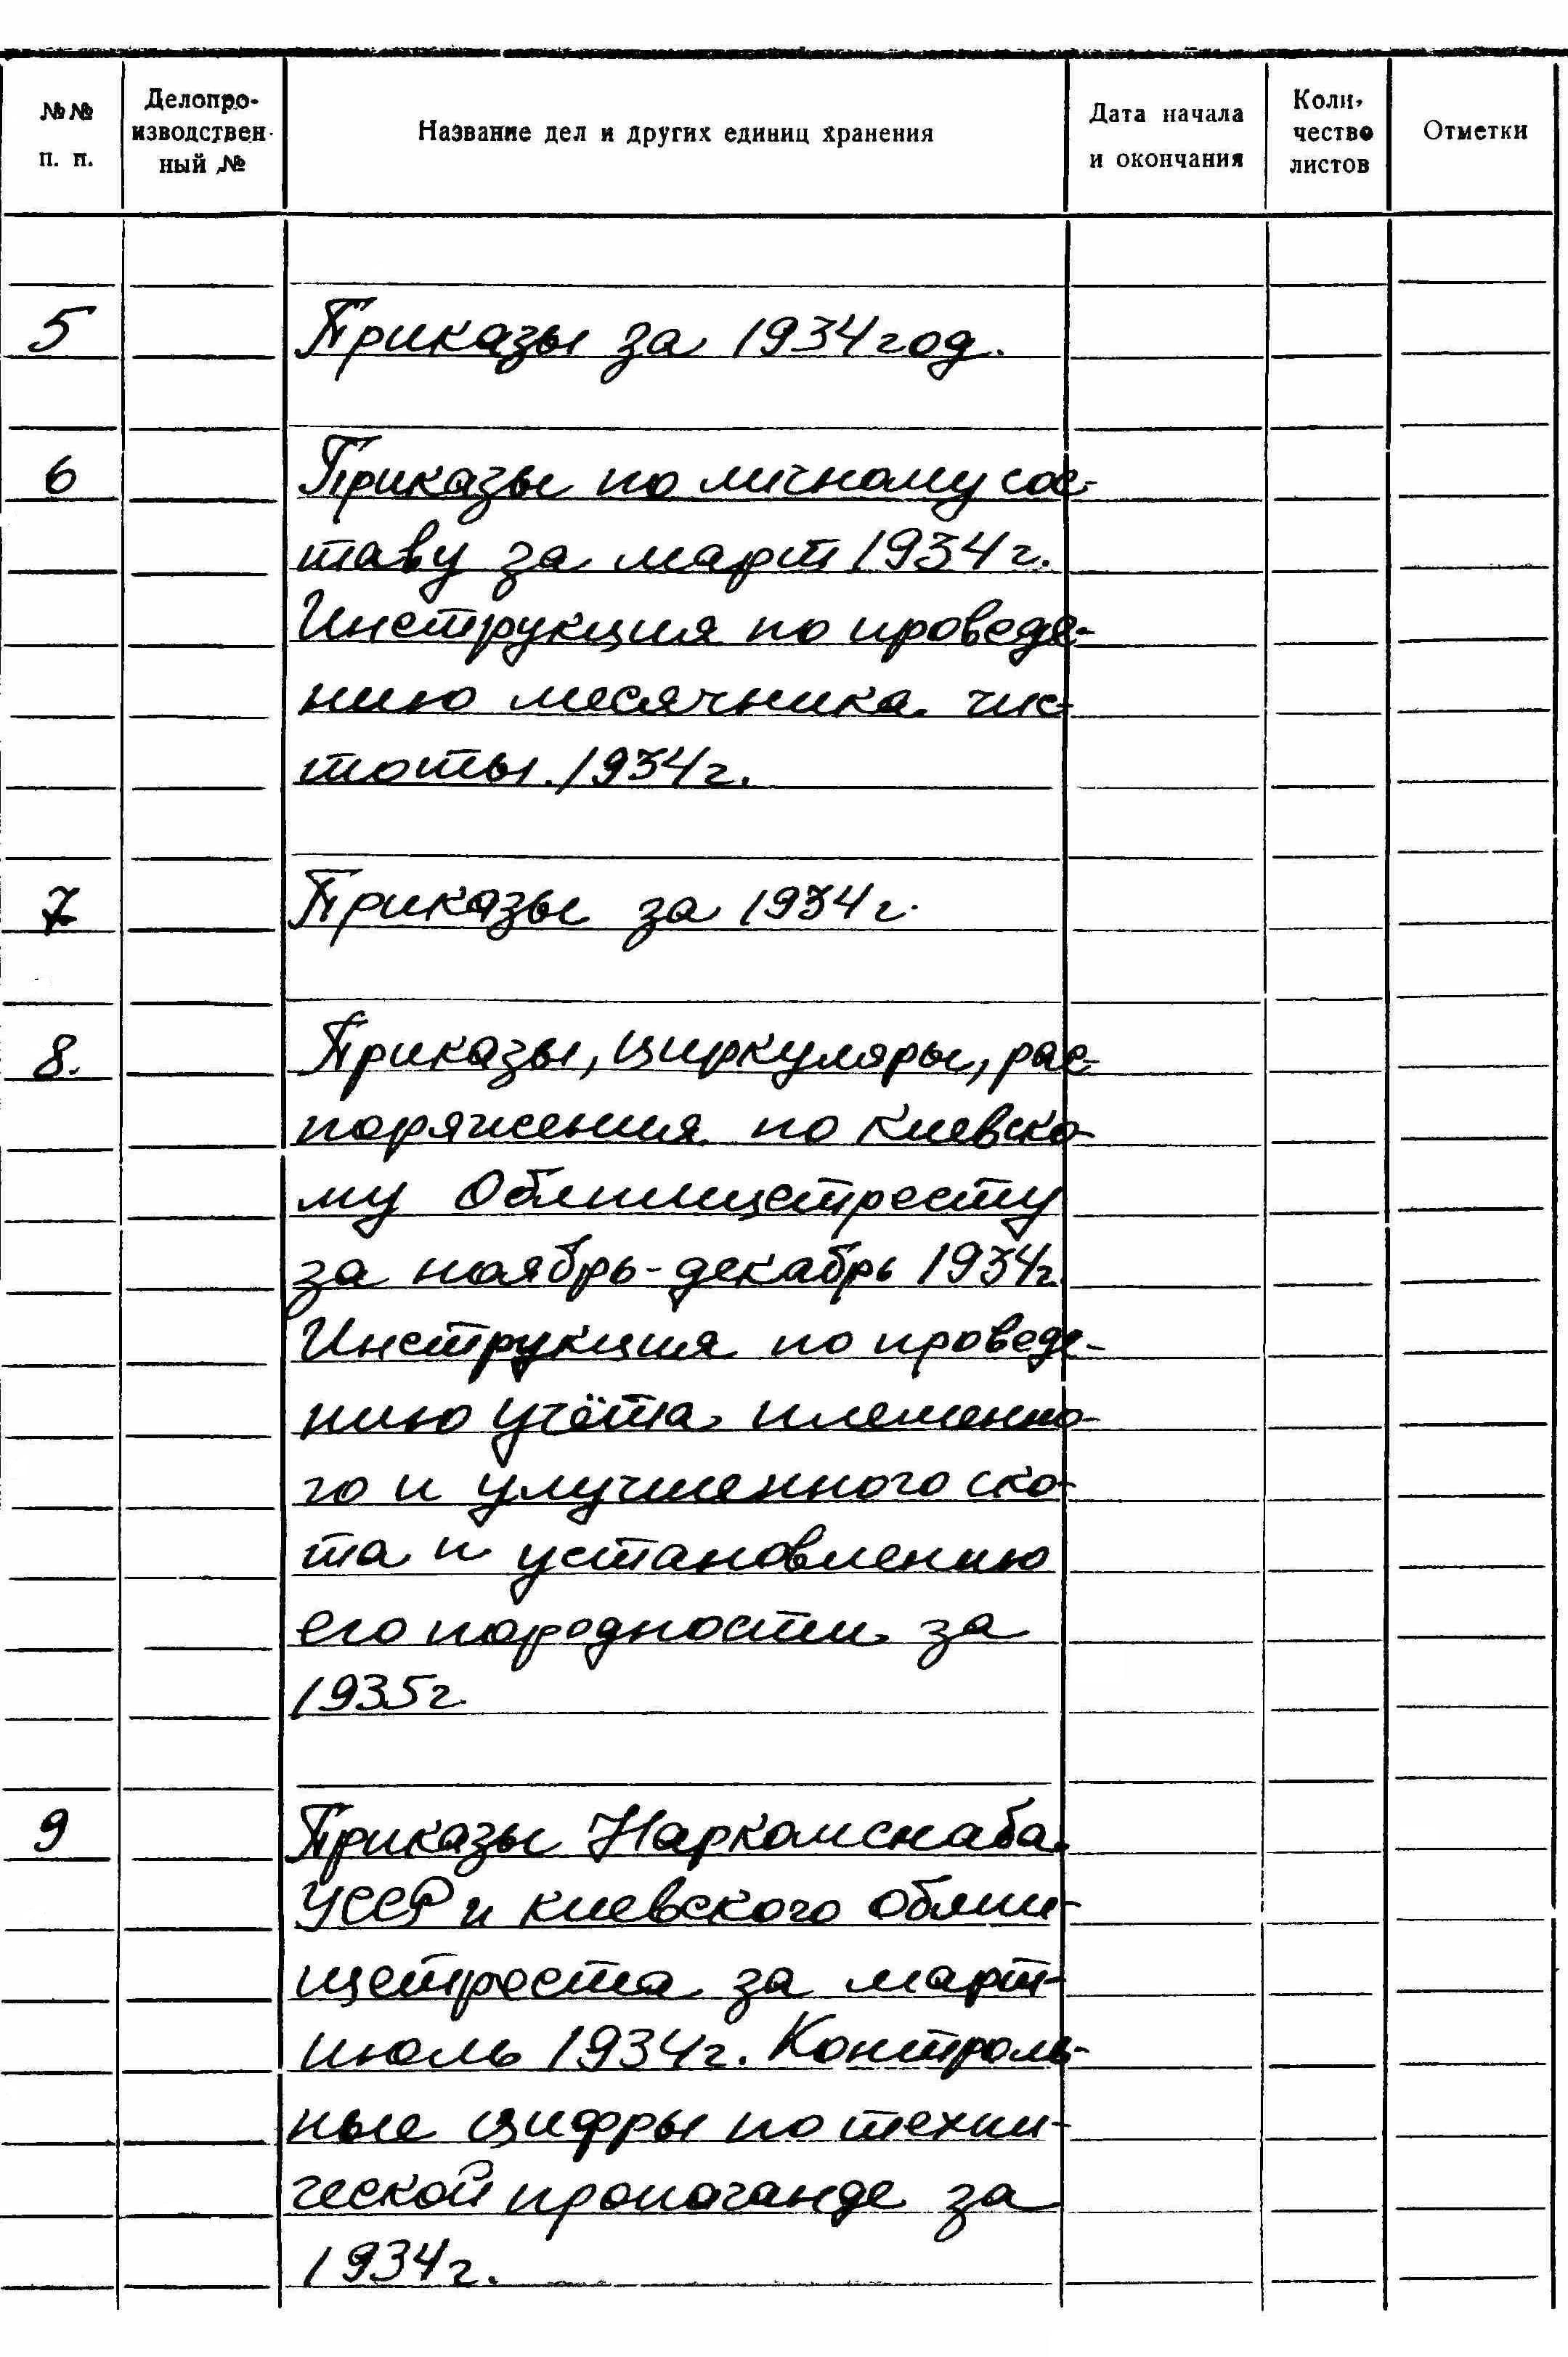 №№ п. п.
Делопро-
изводствен-
ный №
Название дел и других единиц хранения
Дата начала
и окончания
Коли-
чество
листов
Отметки
5 Приказы за 1934 год.
6 Приказы по личному сос-
таву за март 1934 г.
Инструкция по проведе-
нию месячника чис-
тоты. 1934 г.
7 Приказы за 1934 г.
8. Приказы, циркуляры, рас-
поряжения по Киевско-
му Облпищетресту
за ноябрь-декабрь 1934 г
Инструкция по проведе-
нию учёта племенно-
го и улучшенного ско-
та и установлению
его породности за
1935 г.
9 Приказы Наркомснаба
УССР и Киевского облпи-
щетреста за март-
июль 1934 г. Контроль-
ные цифры по техни-
ческой пропаганде за
1934 г.